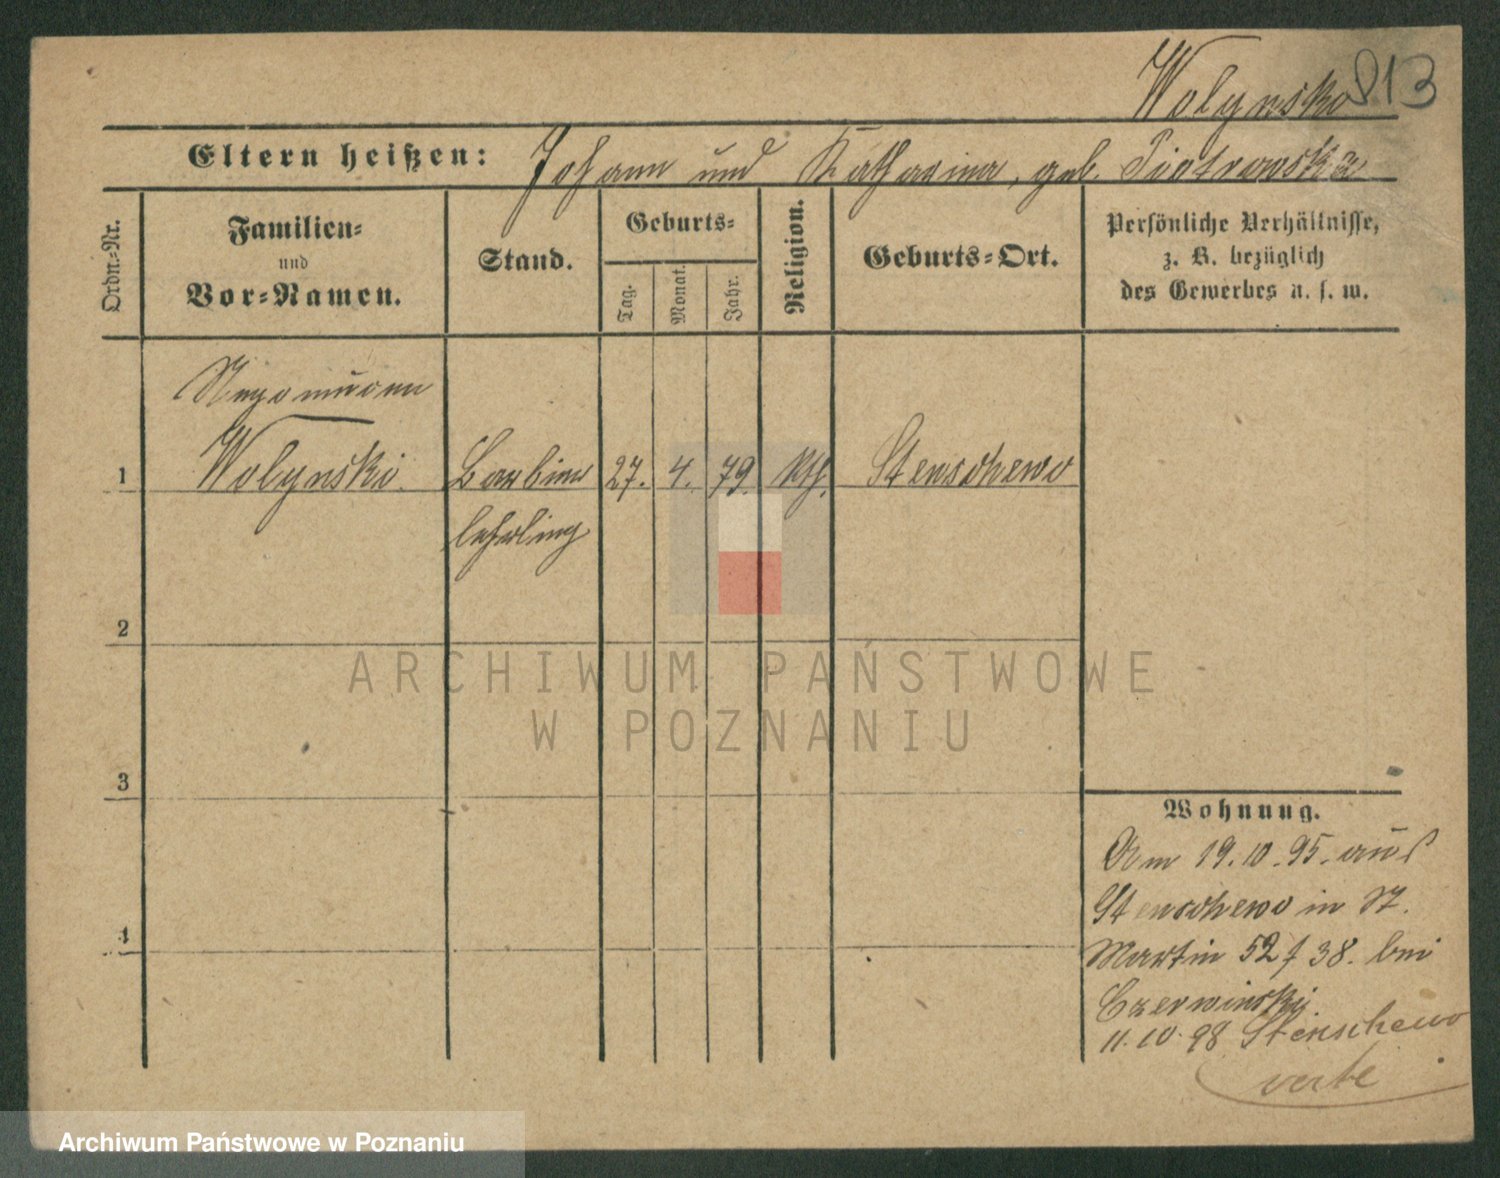 Wolynski 813
Eltern heißen: Johann und Katharina, geb. Piotrowska
Ordn.-Nr.
Familien-
und
Vor-Namen.
Stand.
Geburts-
Tag.
Monat.
Jahr.
Religion.
Geburts-Ort.
Persönliche Verhältnisse,
z. B. bezüglich
des Gewerbes u. s. w.
Nepomucen
1 Wolynski. Barbier 27. 4. 79. kth. Stenschewo
lehrling
2
3
4
Wohnung.
Am 19.10.95. aus
Stenschewo in St.
Martin 52/38. bei
Czerwinski
11.10.98 Stenschewo
verte
ARCHIWUM PAŃSTWOWE
W POZNANIU
Archiwum Państwowe w Poznaniu